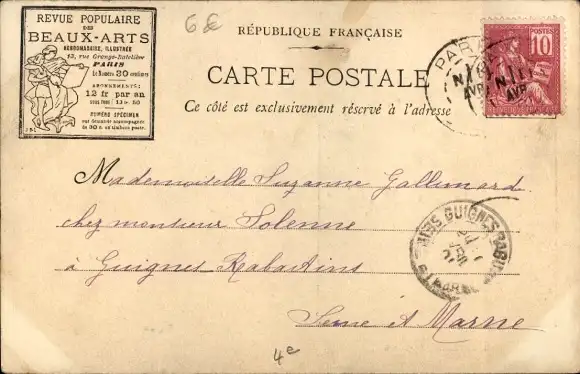 REVUE POPULAIRE
DES
BEAUX-ARTS
HEBDOMADAIRE, ILLUSTRÉE
12, rue Grange-Batelière
PARIS
Le Numéro 30 centimes
ABONNEMENTS:
12 fr par an
NUMÉRO SPÉCIMEN
sur demande accompagnée
de 30 c. en timbres poste.
6€
RÉPUBLIQUE FRANÇAISE
CARTE POSTALE
Ce côté est exclusivement réservé à l'adresse
POSTES
10
PARIS
AVR
AVR
Mademoiselle Suzanne Gallimard
chez monsieur Solenne
à Guignes Rabutins
Seine et Marne
GUIGNES-RABUTIN
4e